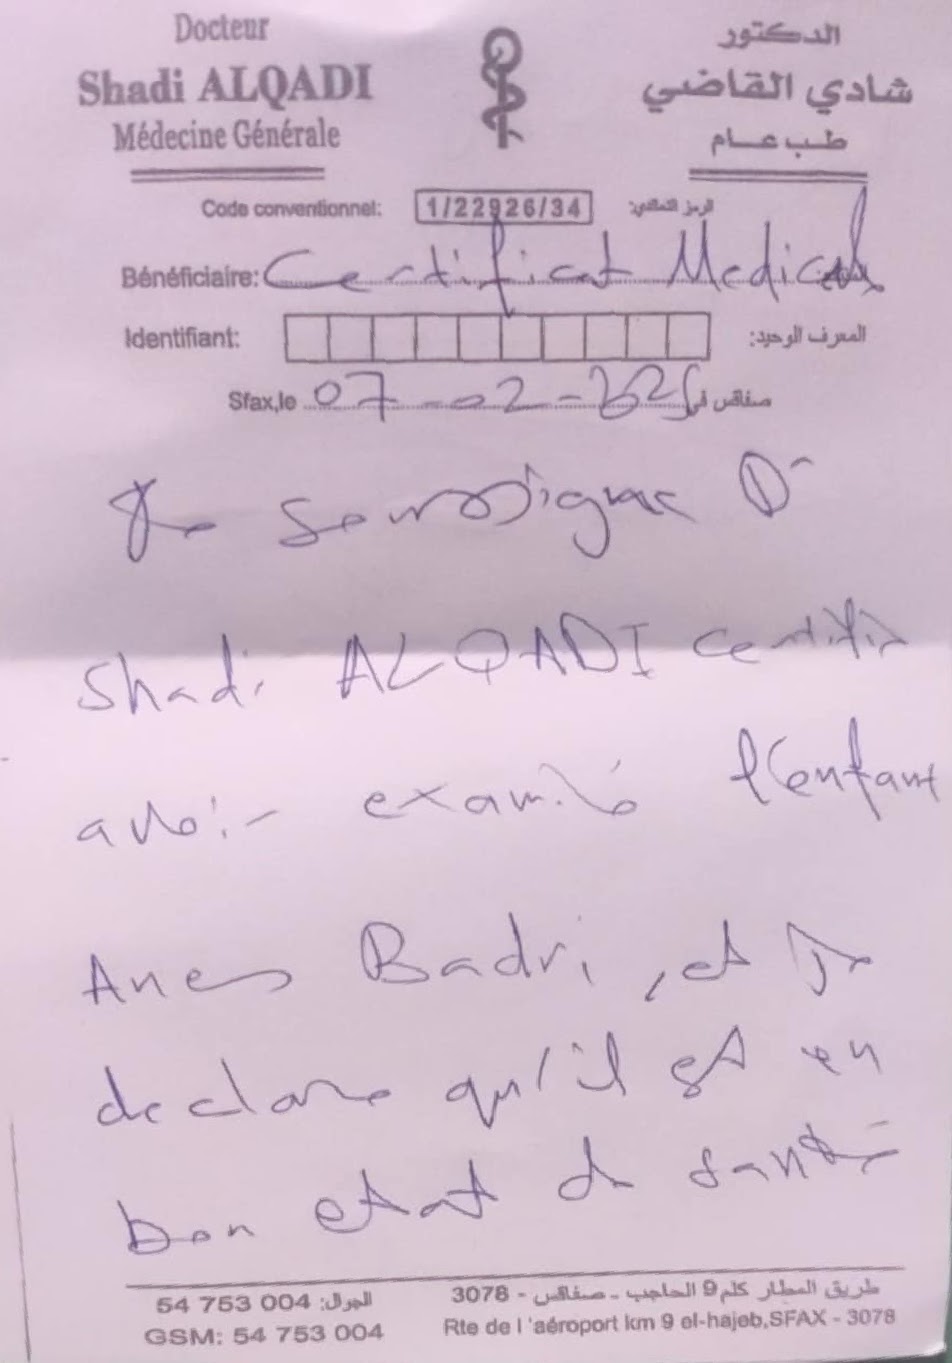 Docteur
Shadi ALQADI
Médecine Générale
الدكتور
شادي القاضي
طب عام
Code conventionnel: 1/22926/34 الرمز التعاقدي:
Bénéficiaire: Certificat Medical
Identifiant: المعرف الوحيد:
Sfax,le 07-02- صفاقس في
Je soussigné Dr
Shadi ALQADI certifie
avoir examiné l'enfant
Anes Badri, et je
declare qu'il est en
bon etat de santé
54 753 004 :الجوال
GSM: 54 753 004
طريق المطار كلم 9 الحاجب - صفاقس - 3078
Rte de l 'aéroport km 9 el-hajeb,SFAX - 3078